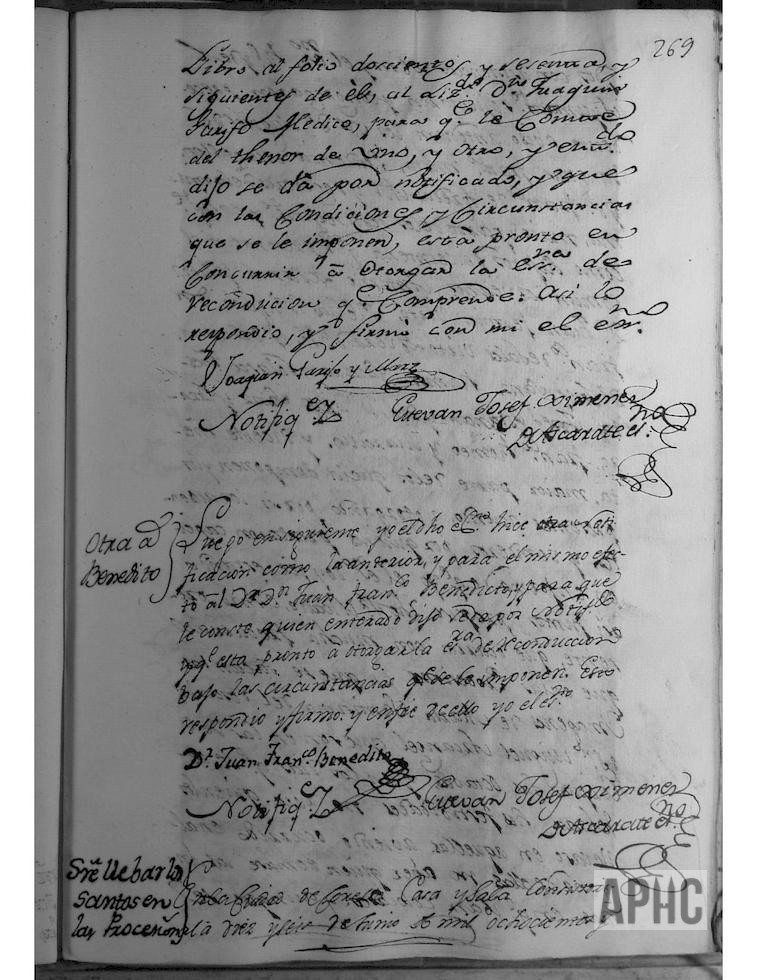 269
Libro, al folio doscientos, y sesenta, y
siguientes de èl, al Liz.do Dn Juaquin
Garifo Medico, para q.e le Conste
del thenor de Uno, y otro, y ente.do
dijo se dà por notificado, y que
con las Condiciones, y Circunstancias
que se le imponen, està pronto en
Concurrir à otorgar la Esra de
reconducion q.e Comprende: Asi lo
respondio, y firmò con mi, el Esno.
Joaquin Garifo y
Notifiq.e
Estevan Josef Ximenez
de Ascarate esno.
Otra a Dn
Benedito
Luego en siguiente yo el dho Esno hice otra Noti
ficacion como la anterior, y para el mismo efec-
to al Dr Dn Juan Franco Benedicto, y para que
le conste quien enterado dijo se da por Notifdo
y q.e esta pronto a otorgar la esra de Reconduccion
bajo las circunstancias q.e se le imponen. Esto
respondio y firmo: y en fee de ello yo el esno
Dr Juan Franco Benedito
Notifiq.e
Estevan Josef Ximenez
de Ascarate esno.
Sre llebar los
Santos en
las Procesiones
En la Ciudad de Corella Casa y Sala Consistorial
à diez y seis de Junio de mil ochocientos y
APHC